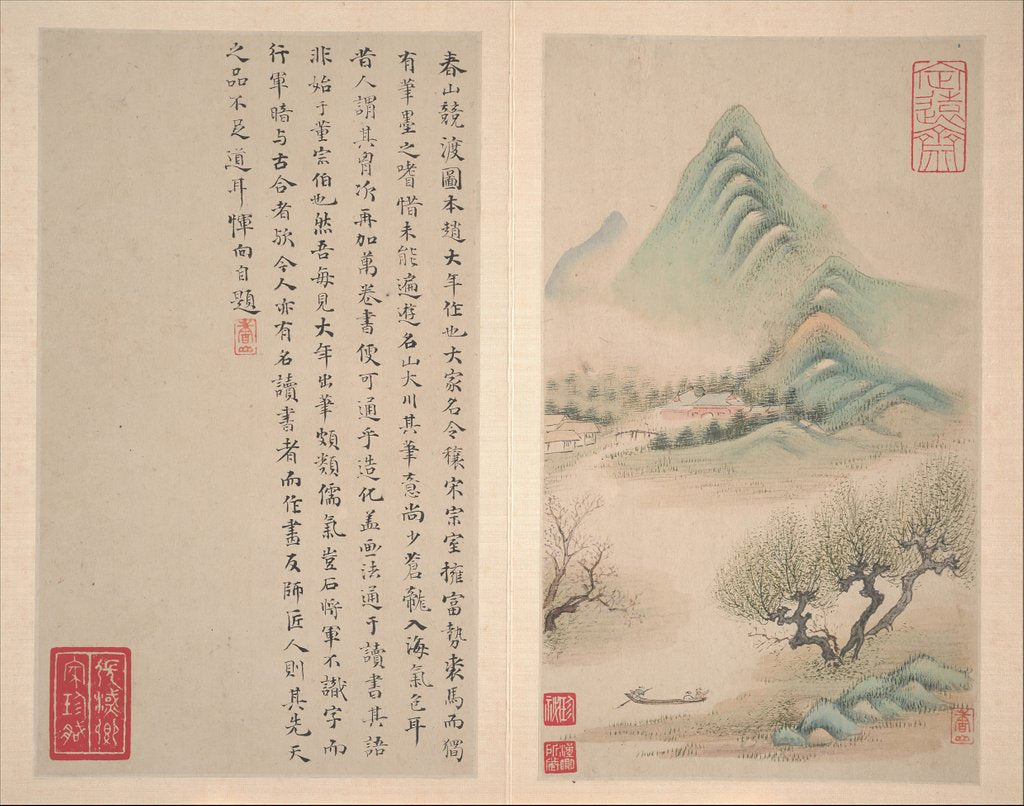 春山競渡圖本趙大年作也大家名令穰宋宗室擁富勢裘馬而獨
有筆墨之嗜惜未能遍遊名山大川其筆意尚少蒼龍入海氣色耳
昔人謂其胷次再加萬卷書便可通乎造化盖画法通于讀書其語
非始于董宗伯也然吾每見大年出筆頗類儒氣豈右將軍不識字而
行軍暗与古合者欤今人亦有名讀書者而作畫友師匠人則其先天
之品不足道耳惲向自題
香山
定遠齋
張檥卿
家珍藏
香山